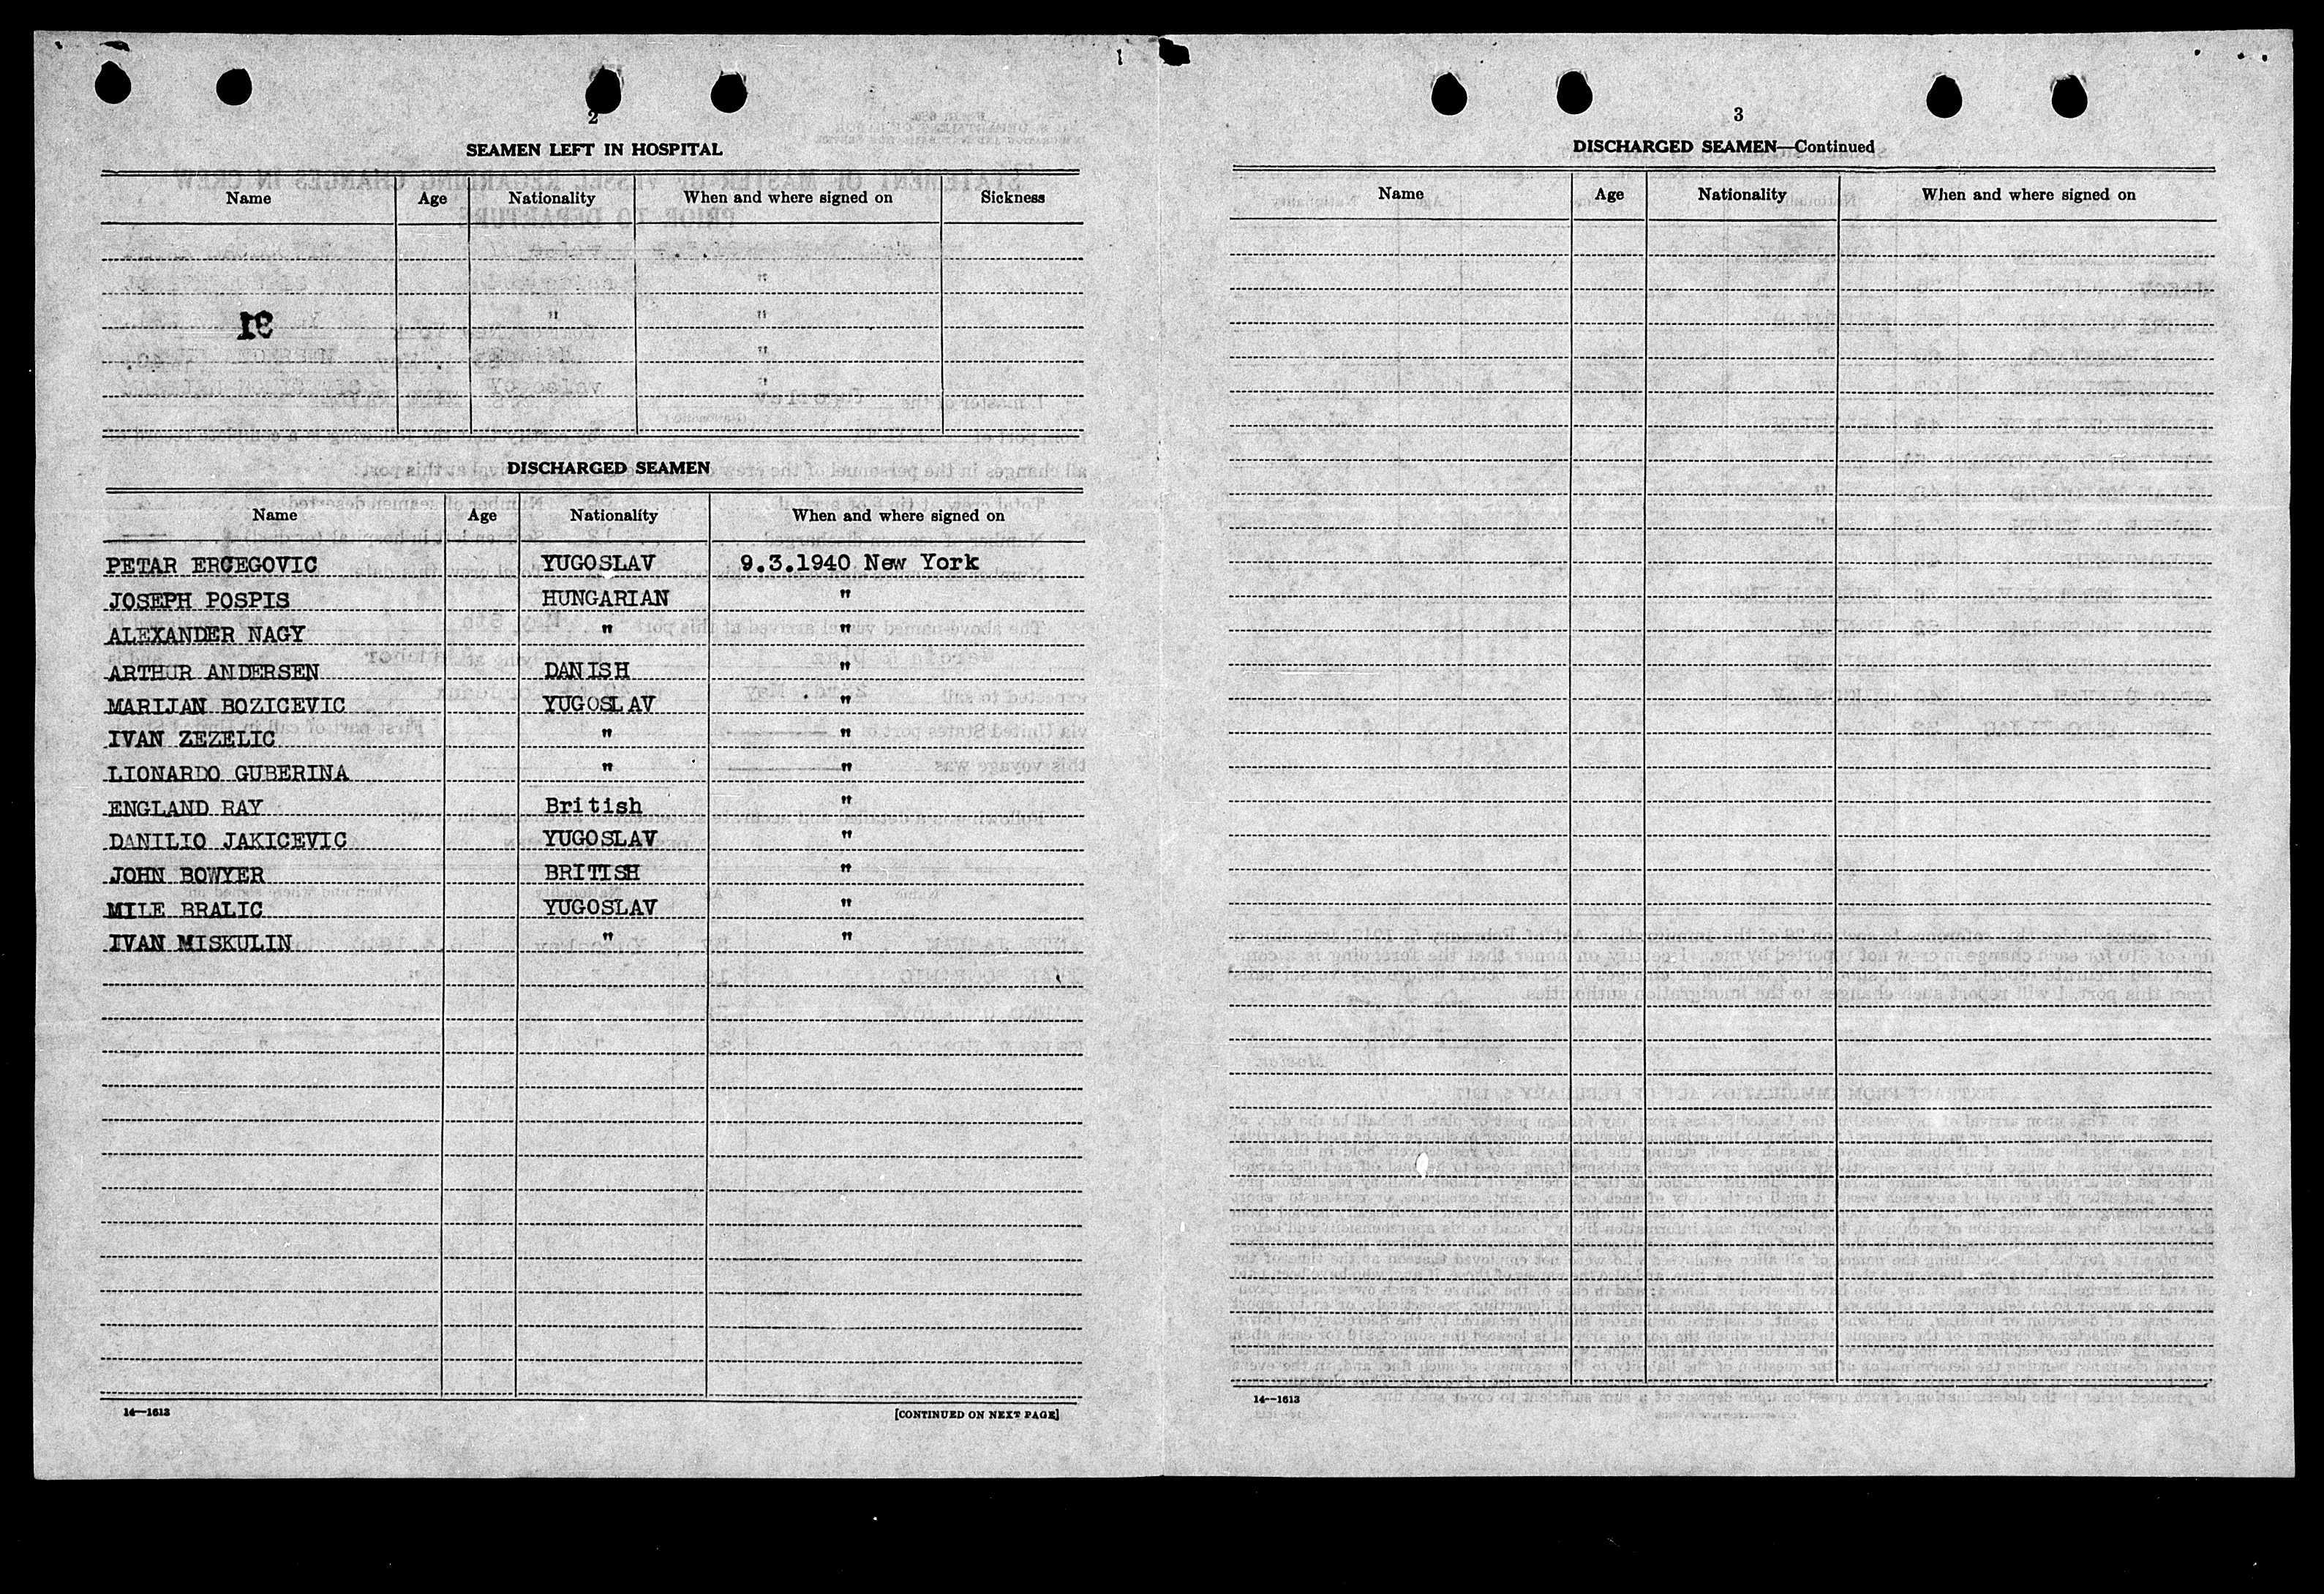 2
SEAMEN LEFT IN HOSPITAL
Name Age Nationality When and where signed on Sickness
"
" "
"
"
DISCHARGED SEAMEN
Name Age Nationality When and where signed on
PETAR ERCEGOVIC YUGOSLAV 9.3.1940 New York
JOSEPH POSPIS HUNGARIAN "
ALEXANDER NAGY " "
ARTHUR ANDERSEN DANISH "
MARIJAN BOZICEVIC YUGOSLAV "
IVAN ZEZELIC " "
LIONARDO GUBERINA " "
ENGLAND RAY British "
DANILIO JAKICEVIC YUGOSLAV "
JOHN BOWYER BRITISH "
MILE BRALIC YUGOSLAV "
IVAN MISKULIN " "
14—1613 [CONTINUED ON NEXT PAGE]
3
DISCHARGED SEAMEN—Continued
Name Age Nationality When and where signed on
14—1613